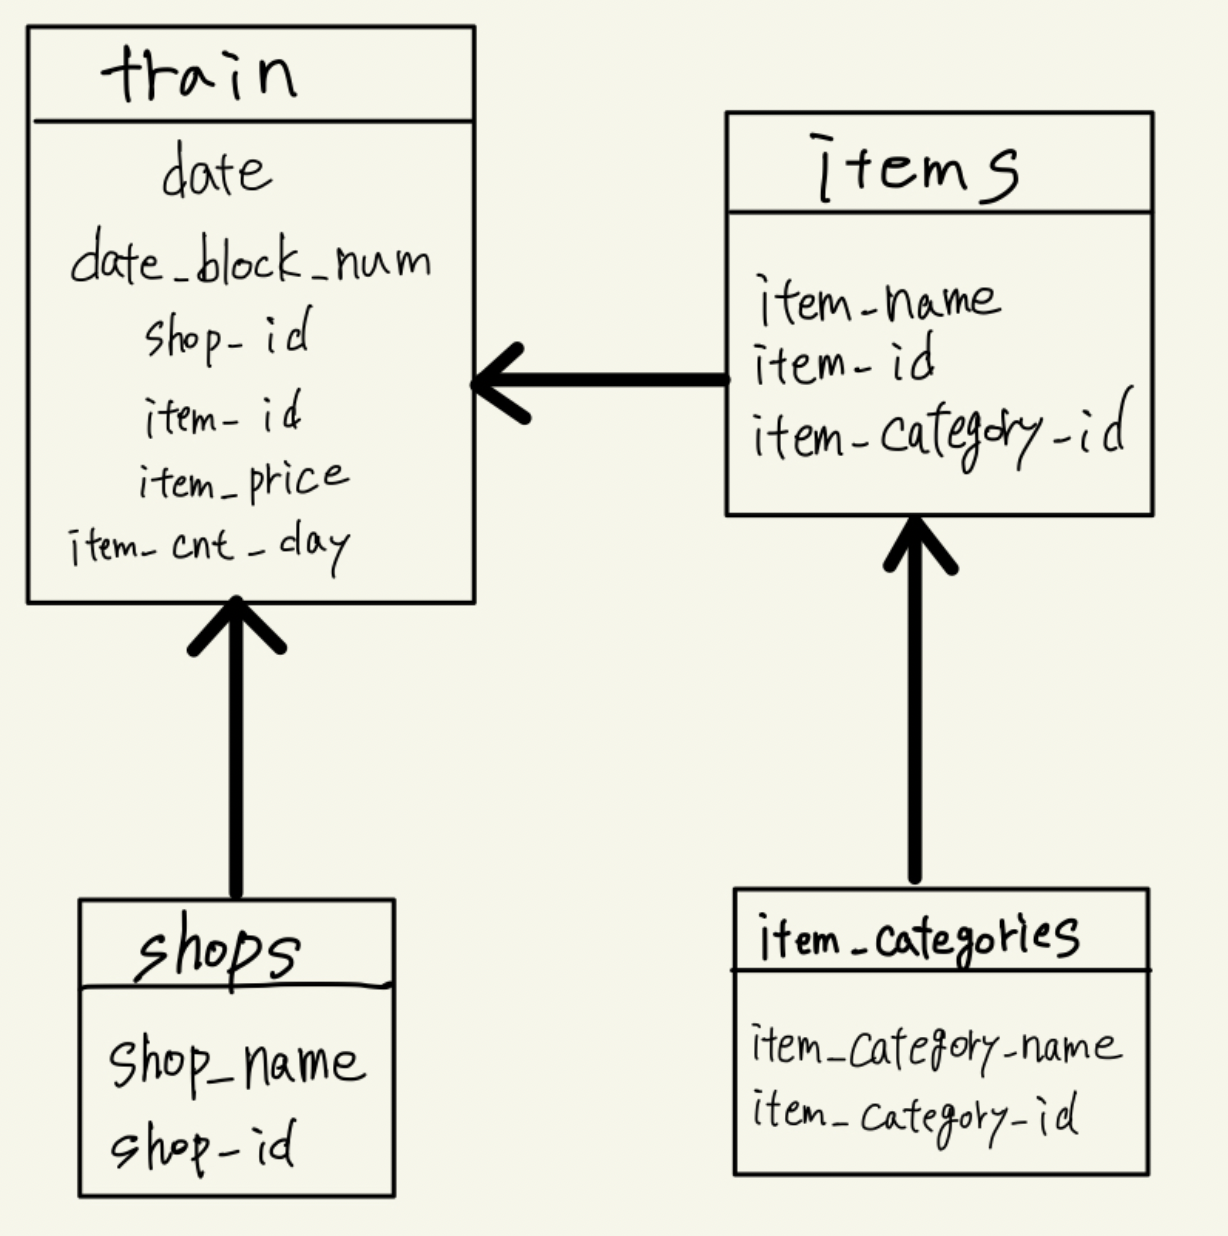 train
date
date_block_num
shop_id
item_id
item_price
item_cnt_day
items
item_name
item_id
item_category_id
shops
shop_name
shop_id
item_categories
item_category_name
item_category_id